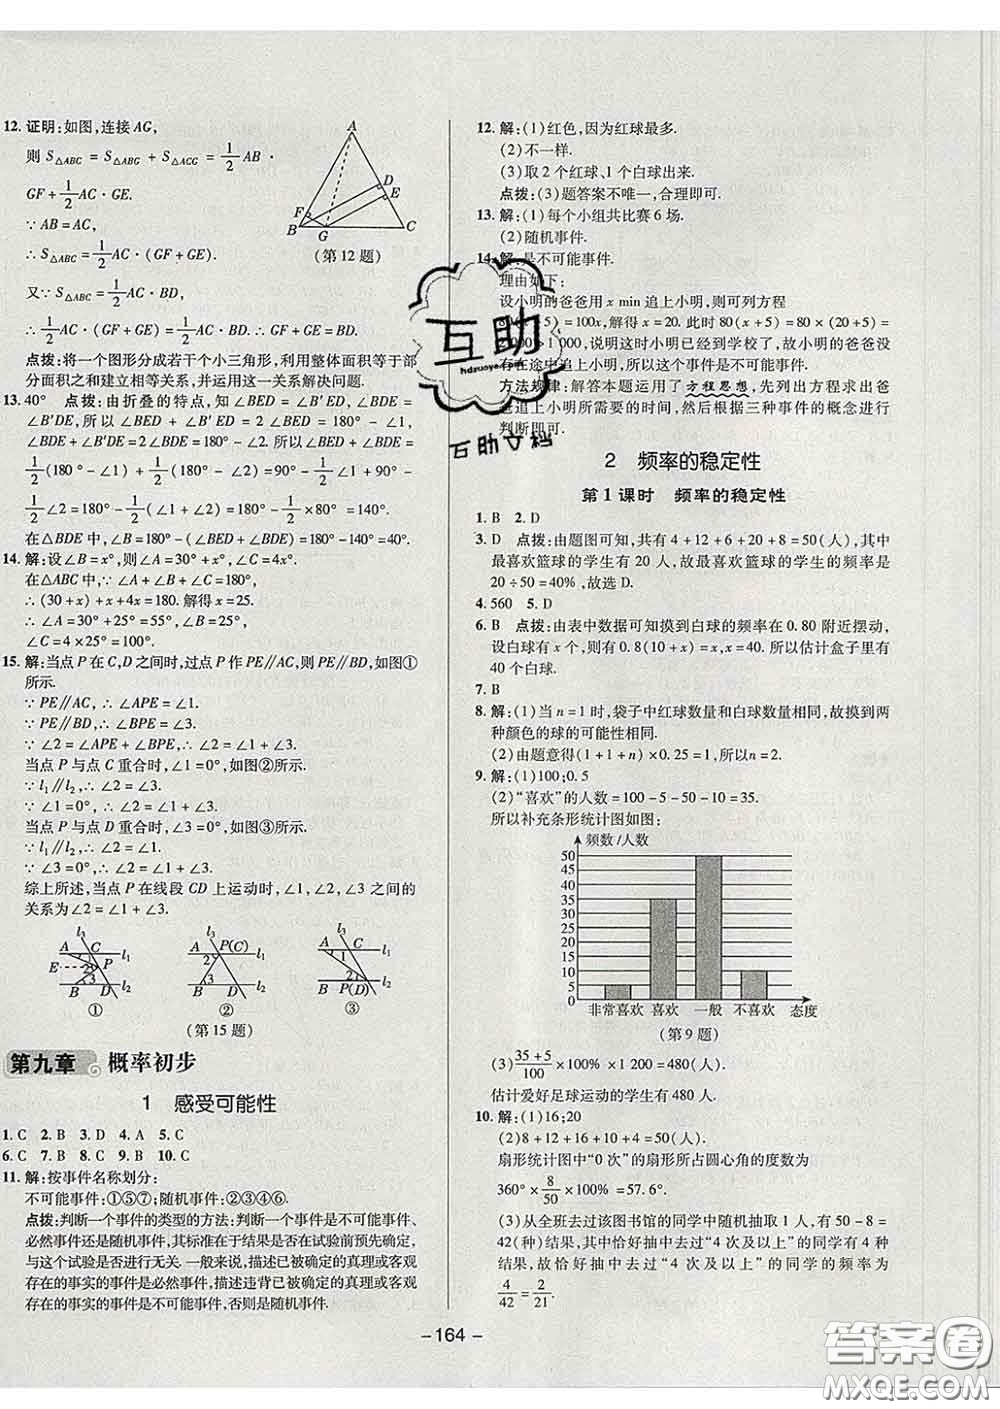 12. 证明:如图,连接 AG,
则 S△ABC = S△ABG + S△ACG = 1/2 AB ·
GF + 1/2 AC · GE.
∵ AB = AC,
∴ S△ABC = 1/2 AC · (GF + GE).
又∵ S△ABC = 1/2 AC · BD,
∴ 1/2 AC · (GF + GE) = 1/2 AC · BD. ∴ GF + GE = BD.
点拨:将一个图形分成若干个小三角形,利用整体面积等于部
分面积之和建立相等关系,并运用这一关系解决问题.
A
D
E
F
B
G
C
(第 12 题)
13. 40° 点拨:由折叠的特点,知∠BED = ∠B'ED, ∠BDE =
∠B'DE,所以∠BED + ∠B'ED = 2∠BED = 180° - ∠1,
∠BDE + ∠B'DE = 2∠BDE = 180° - ∠2. 所以∠BED + ∠BDE =
1/2(180° - ∠1) + 1/2(180° - ∠2) = 90° - 1/2∠1 + 90° -
1/2∠2 = 180° - 1/2(∠1 + ∠2) = 180° - 1/2 × 80° = 140°.
在△BDE 中,∠B = 180° - (∠BED + ∠BDE) = 180° - 140° = 40°.
14. 解:设∠B = x°,则∠A = 30° + x°,∠C = 4x°.
在△ABC 中,∵∠A + ∠B + ∠C = 180°,
∴ (30 + x) + x + 4x = 180. 解得 x = 25.
∴ ∠A = 30° + 25° = 55°, ∠B = 25°,
∠C = 4 × 25° = 100°.
15. 解:当点 P 在 C,D 之间时,过点 P 作 PE∥AC,则 PE∥BD,如图①
所示.
∵ PE∥AC, ∴ ∠APE = ∠1.
∵ PE∥BD, ∴ ∠BPE = ∠3.
∵ ∠2 = ∠APE + ∠BPE, ∴ ∠2 = ∠1 + ∠3.
当点 P 与点 C 重合时,∠1 = 0°,如图②所示.
∵ l1∥l2, ∴ ∠2 = ∠3.
∵ ∠1 = 0°, ∴ ∠2 = ∠1 + ∠3.
当点 P 与点 D 重合时,∠3 = 0°,如图③所示.
∵ l1∥l2, ∴ ∠2 = ∠1.
∵ ∠3 = 0°, ∴ ∠2 = ∠1 + ∠3.
综上所述,当点 P 在线段 CD 上运动时,∠1,∠2,∠3 之间的
关系为∠2 = ∠1 + ∠3.
l3 A C l1 1 E 2 P 3 B D l2
①
l3 A P(C) l1 2 3 B D l2
②
l3 A C l1 1 2 B P(D) l2
③
(第 15 题)
第九章 概率初步
1 感受可能性
1. C 2. B 3. D 4. A 5. C
6. C 7. B 8. B 9. B 10. C
11. 解:按事件名称划分:
不可能事件:①⑤⑦;随机事件:②③④⑥.
点拨:判断一个事件的类型的方法:判断一个事件是不可能事件、
必然事件还是随机事件,其标准在于结果是否在试验前预先确定,
与这个试验是否进行无关. 一般来说,描述已被确定的真理或客观
存在的事实的事件是必然事件,描述违背已被确定的真理或客观
存在的事实的事件是不可能事件,否则是随机事件.
12. 解:(1)红色,因为红球最多.
(2)不一样.
(3)取 2 个红球、1 个白球出来.
点拨:(3)题答案不唯一,合理即可.
13. 解:(1)每个小组共比赛 6 场.
(2)随机事件.
14. 解:是不可能事件.
理由如下:
设小明的爸爸用 x min 追上小明,则可列方程
80(x + 5) = 100x,解得 x = 20. 此时 80(x + 5) = 80 × (20 + 5) =
2 000 > 1 000,说明这时小明已经到了学校了,故小明的爸爸没
存在途中追上小明,所以这个事件是不可能事件.
方法规律:解答本题运用了方程思想,先列出方程求出爸
爸追上小明所需要的时间,然后根据三种事件的概念进行
判断即可.
互助
hdzuoye.com
互助文档
2 频率的稳定性
第 1 课时 频率的稳定性
1. B 2. D
3. D 点拨:由题图可知,共有 4 + 12 + 6 + 20 + 8 = 50(人),其中
最喜欢篮球的学生有 20 人,故最喜欢篮球的学生的频率是
20 ÷ 50 = 40%,故选 D.
4. 560 5. D
6. B 点拨:由表中数据可知摸到白球的频率在 0.80 附近摆动,
设白球有 x 个,则有 0.8(10 + x) = x,x = 40. 所以估计盒子里有
40 个白球.
7. B
8. 解:(1)当 n = 1 时,袋子中红球数量和白球数量相同,故摸到两
种颜色的球的可能性相同.
(2)由题意得(1 + 1 + n) × 0.25 = 1,所以 n = 2.
9. 解:(1)100;0.5
(2)“喜欢”的人数 = 100 - 5 - 50 - 10 = 35.
所以补充条形统计图如图:
频数/人数
50
45
40
35
30
25
20
15
10
5
0
非常喜欢 喜欢 一般 不喜欢 态度
(第 9 题)
(3) (35 + 5)/100 × 100% × 1 200 = 480(人).
估计爱好足球运动的学生有 480 人.
10. 解:(1)16;20
(2)8 + 12 + 16 + 10 + 4 = 50(人).
扇形统计图中“0 次”的扇形所占圆心角的度数为
360° × 8/50 × 100% = 57.6°.
(3)从全班去过该图书馆的同学中随机抽取 1 人,有 50 - 8 =
42(种)结果,其中恰好抽中去过“4 次及以上”的同学有 4 种
结果,故恰好抽中去过“4 次及以上”的同学的频率为
4/42 = 2/21.
- 164 -
答案圈
MXQE.COM